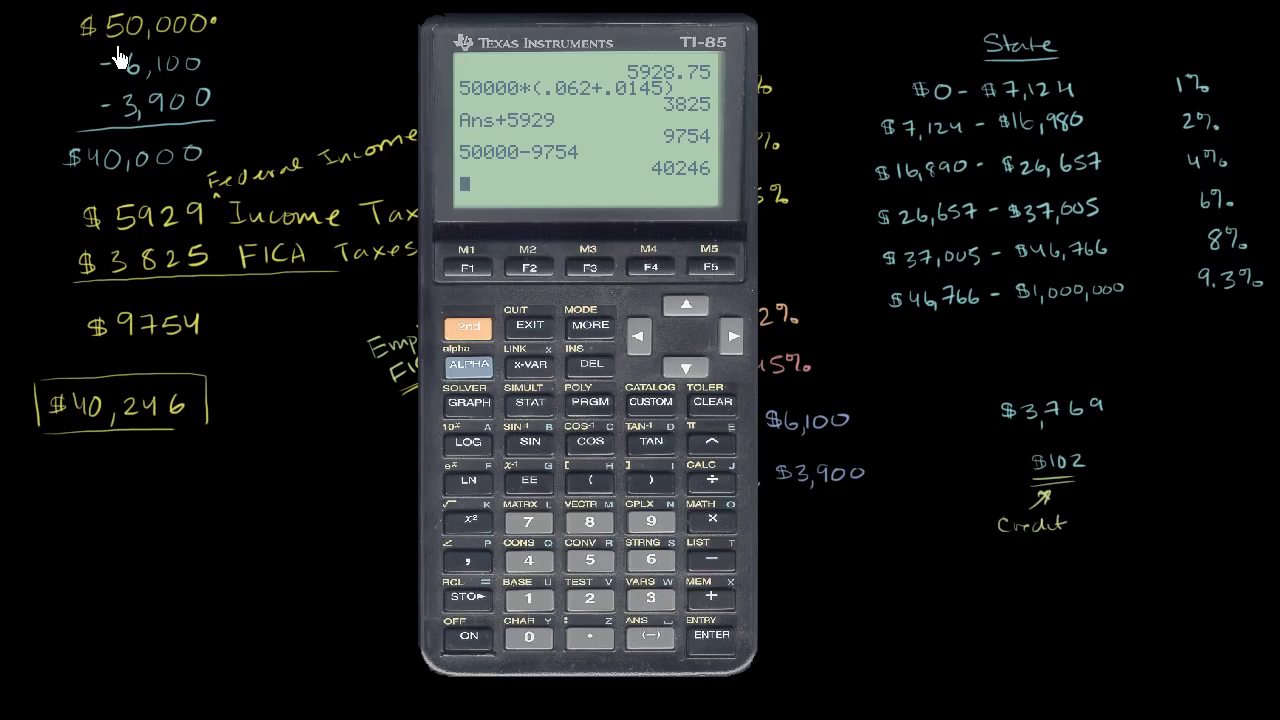 $50,000
- 6,100
- 3,900
$40,000
Federal Income
$5929 ^ Income Tax
$3825 FICA Taxes
$9754
$40,246
Emp
FI
%
%
5%
2%
45%
$6,100
$3,900
TEXAS INSTRUMENTS TI-85
5928.75
50000*(.062+.0145)
3825
Ans+5929
9754
50000-9754
40246
M1 M2 M3 M4 M5
F1 F2 F3 F4 F5
QUIT MODE
2nd EXIT MORE
alpha LINK x INS
ALPHA x-VAR DEL
SOLVER SIMULT POLY CATALOG TOLER
GRAPH STAT PRGM CUSTOM CLEAR
10ˣ A SIN⁻¹ B COS⁻¹ C TAN⁻¹ D π E
LOG SIN COS TAN ^
eˣ F x⁻¹ G [ H ] I CALC J
LN EE ( ) ÷
√ K MATRX L VECTR M CPLX N MATH O
x² 7 8 9 ×
∠ P CONS Q CONV R STRNG S LIST T
, 4 5 6 −
RCL = BASE U TEST V VARS W MEM X
STO► 1 2 3 +
OFF CHAR Y : Z ANS ␣ ENTRY
ON 0 . (−) ENTER
State
$0 - $7,124 1%
$7,124 - $16,980 2%
$16,890 - $26,657 4%
$26,657 - $37,005 6%
$37,005 - $46,766 8%
$46,766 - $1,000,000 9.3%
$3,769
$102
Credit